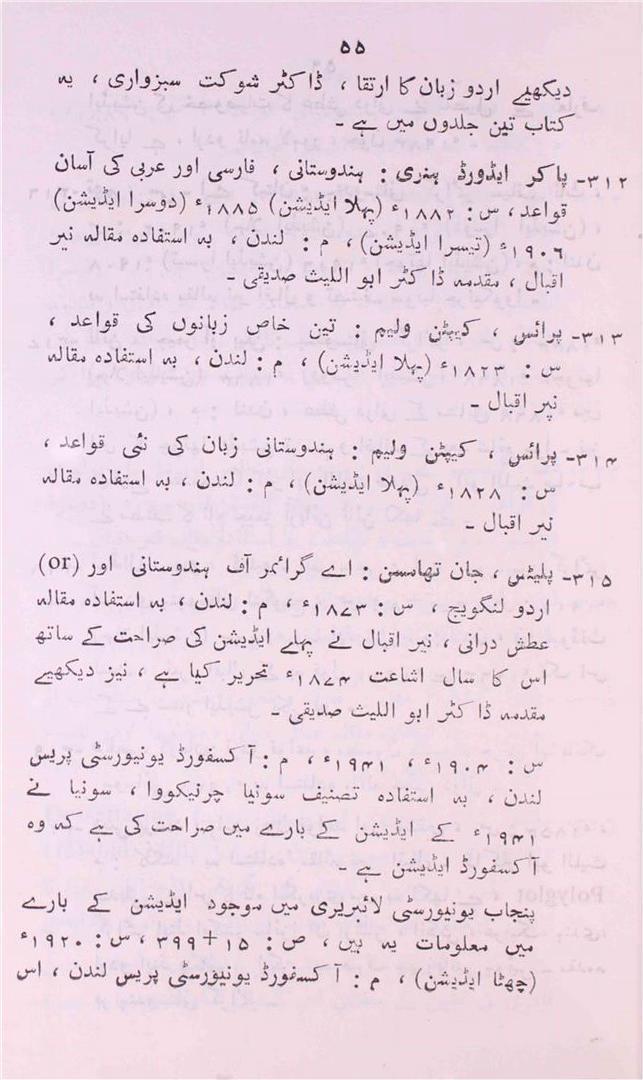 ۵۵
دیکھیے اردو زبان کا ارتقا ، ڈاکٹر شوکت سبزواری ، یہ
کتاب تین جلدوں میں ہے ۔
۳۱۲۔ پاکر ایڈورڈ ہنری : ہندوستانی ، فارسی اور عربی کی آسان
قواعد ، س : ۱۸۸۲ء (پہلا ایڈیشن) ۱۸۸۵ء (دوسرا ایڈیشن)
۱۹۰۶ء (تیسرا ایڈیشن) ، م : لندن ، بہ استفادہ مقالہ نیر
اقبال ، مقدمہ ڈاکٹر ابو اللیث صدیقی ۔
۳۱۳۔ پرائس ، کیپٹن ولیم : تین خاص زبانوں کی قواعد ،
س : ۱۸۲۳ء (پہلا ایڈیشن) ، م : لندن ، بہ استفادہ مقالہ
نیر اقبال ۔
۳۱۴۔ پرائس ، کیپٹن ولیم : ہندوستانی زبان کی نئی قواعد ،
س : ۱۸۲۸ء (پہلا ایڈیشن) ، م : لندن ، بہ استفادہ مقالہ
نیر اقبال ۔
۳۱۵۔ پلیٹس ، جان تھامسن : اے گرائمر آف ہندوستانی اور (or)
اردو لنگویج ، س : ۱۸۷۳ء ، م : لندن ، بہ استفادہ مقالہ
عطش درانی ، نیر اقبال نے پہلے ایڈیشن کی صراحت کے ساتھ
اس کا سال اشاعت ۱۸۷۴ء تحریر کیا ہے ، نیز دیکھیے
مقدمہ ڈاکٹر ابو اللیث صدیقی ۔
س : ۱۹۰۴ء ، ۱۹۴۱ء ، م : آکسفورڈ یونیورسٹی پریس
لندن ، بہ استفادہ تصنیف سونیا چرنیکووا ، سونیا نے
۱۹۴۱ء کے ایڈیشن کے بارے میں صراحت کی ہے کہ وہ
آکسفورڈ ایڈیشن ہے ۔
پنجاب یونیورسٹی لائبریری میں موجود ایڈیشن کے بارے
میں معلومات یہ ہیں ، ص : ۱۵+۳۹۹ ، س : ۱۹۲۰ء
(چھٹا ایڈیشن) ، م : آکسفورڈ یونیورسٹی پریس لندن ، اس